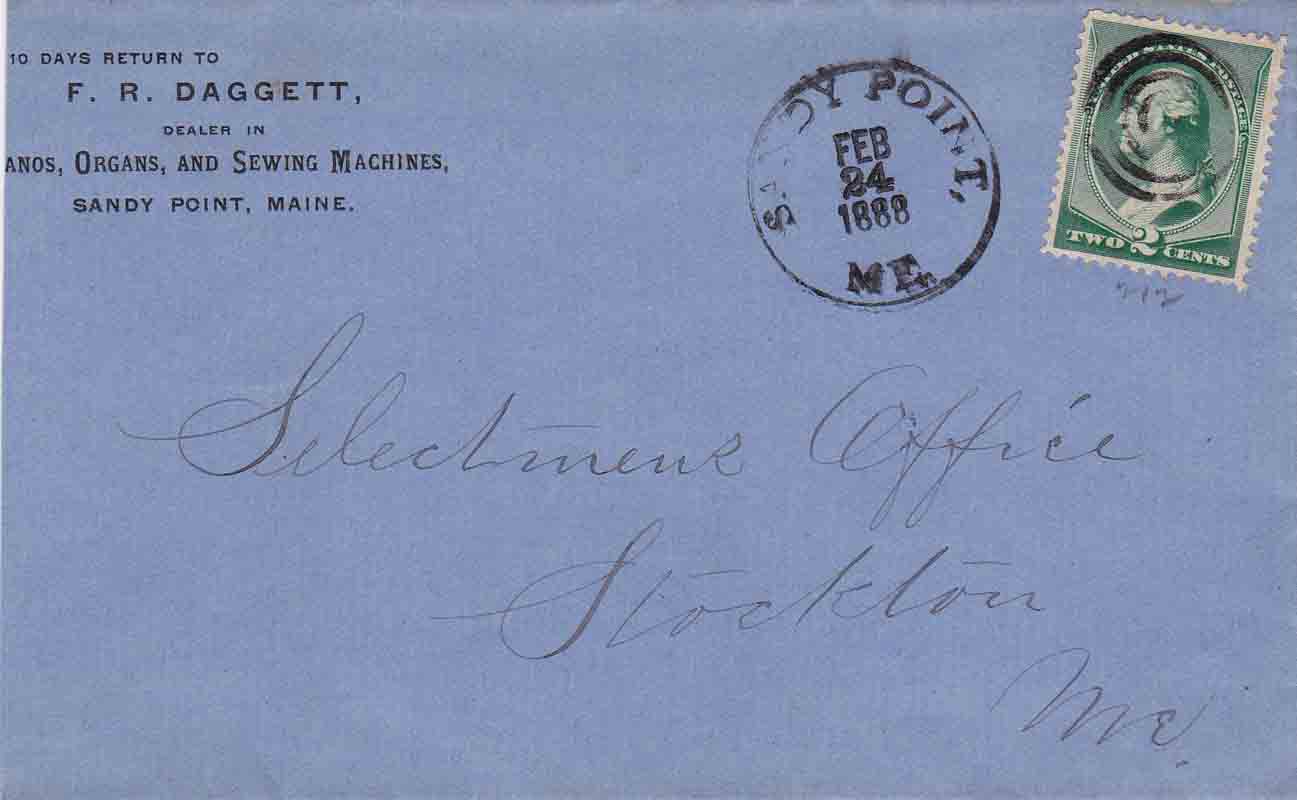 10 DAYS RETURN TO
F. R. DAGGETT,
DEALER IN
ANOS, ORGANS, AND SEWING MACHINES,
SANDY POINT, MAINE.
SANDY POINT,
FEB
24
1888
ME.
UNITED STATES POSTAGE
TWO 2 CENTS
213
Selectmens Office
Stockton
Me.